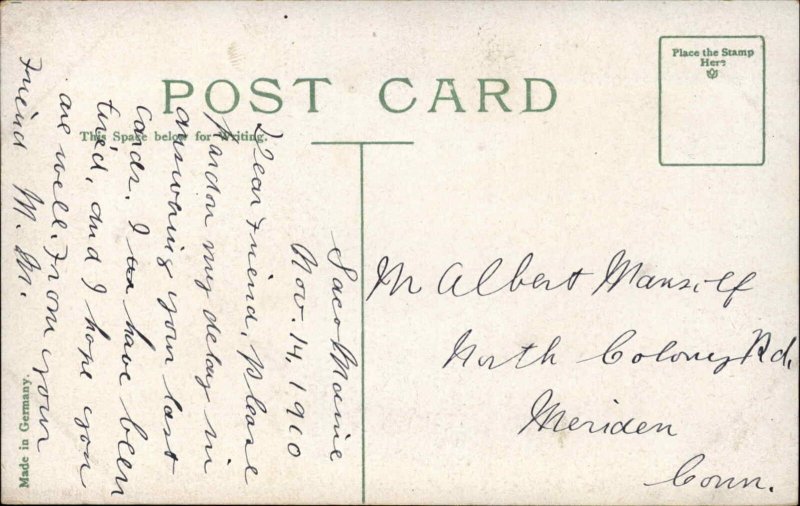 POST CARD
This Space below for Writing.
Place the Stamp
Here
Saco Maine
Nov. 14, 1910
Dear Friend, Please
pardon my delay in
answering your last
cards. I have been
tired, and I hope you
are well. From your
Friend M. M.
M Albert Mansilf
North Colony Rd.
Meriden
Conn.
Made in Germany.